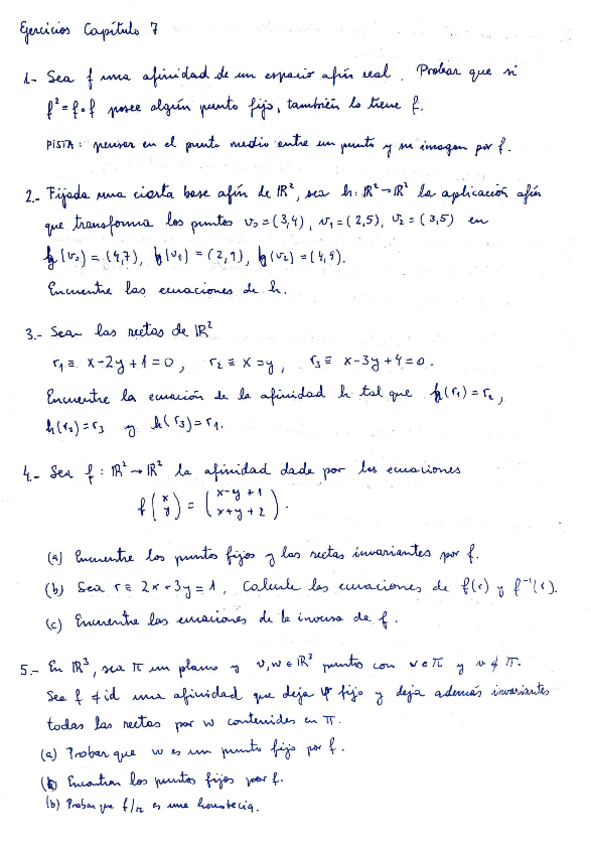 Ejercicios Capítulo 7
1.- Sea f una afinidad de un espacio afín real. Probar que si
f² = f∘f posee algún punto fijo, también lo tiene f.
PISTA: pensar en el punto medio entre un punto y su imagen por f.
2.- Fijada una cierta base afín de ℝ², sea h: ℝ²→ℝ² la aplicación afín
que transforma los puntos v₀=(3,4), v₁=(2,5), v₂=(3,5) en
h(v₀)=(4,7), h(v₁)=(2,9), h(v₂)=(4,9).
Encuentre las ecuaciones de h.
3.- Sean las rectas de ℝ²
r₁≡ x-2y+1=0, r₂≡ x=y, r₃≡ x-3y+4=0.
Encuentre la ecuación de la afinidad h tal que h(r₁)=r₂,
h(r₂)=r₃ y h(r₃)=r₁.
4.- Sea f: ℝ²→ℝ² la afinidad dada por las ecuaciones
f(x y) = (x-y+1 x+y+2).
(a) Encuentre los puntos fijos y las rectas invariantes por f.
(b) Sea r≡ 2x+3y=1. Calcule las ecuaciones de f(r) y f⁻¹(r).
(c) Encuentre las ecuaciones de la inversa de f.
5.- En ℝ³, sea π un plano y v,w∈ℝ³ puntos con w∈π y v∉π.
Sea f≠id una afinidad que deja fijo y deja además invariantes
todas las rectas por w contenidas en π.
(a) Probar que w es un punto fijo por f.
Encontrar los puntos fijos por f.
(b) Probar que f/π es una homotecia.